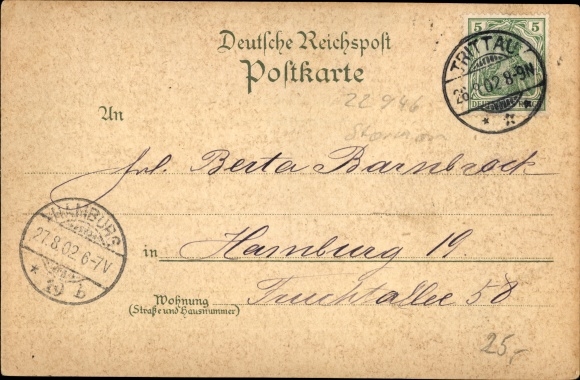 Deutsche Reichspost
Postkarte
5 5
TRITTAU
26.8.02 8-9N
* *
22946
Stormarn
An
frl. Berta Barnbrock
HAMBURG
27.8.02 6-7V
* 19 b
in Hamburg 19.
Wohnung
(Straße und Hausnummer)
Fruchtallee 58
25,-